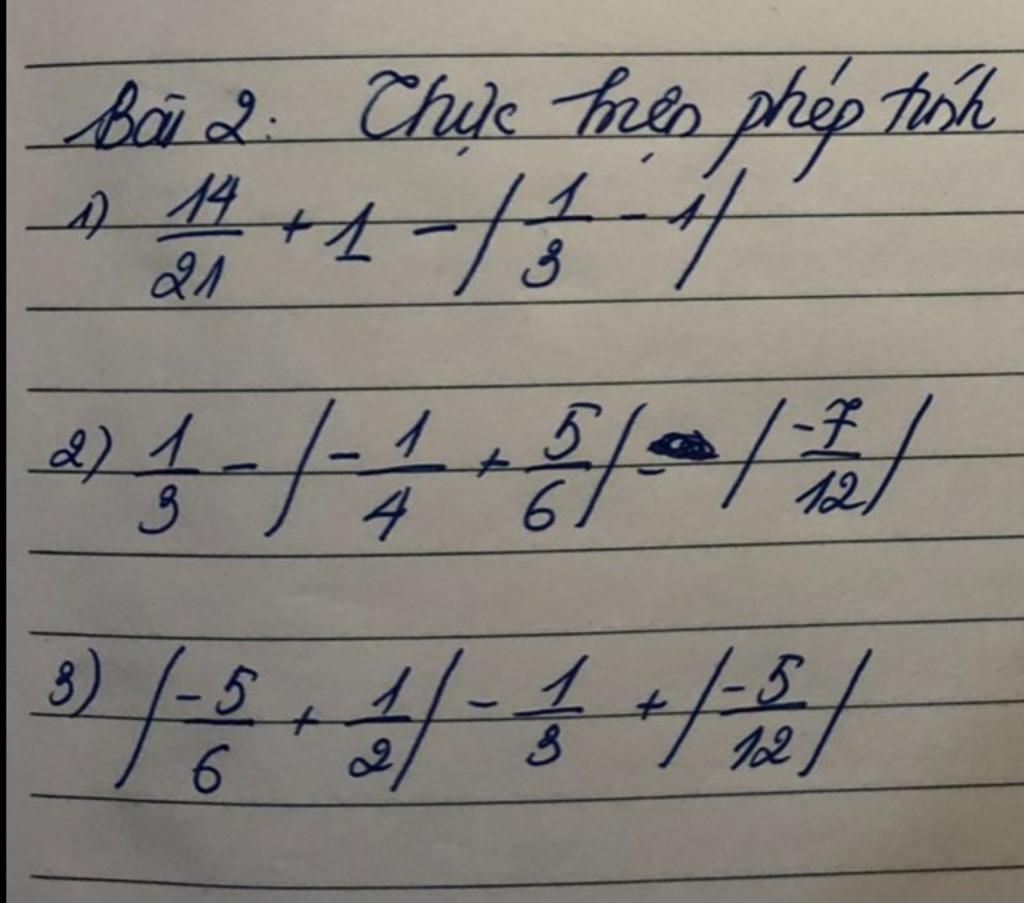 Bài 2: Thực hiện phép tính
1) 14/21 + 1 - |1/3 - 1|
2) 1/3 - |-1/4 + 5/6| - |-7/12|
3) |-5/6 + 1/2| - 1/3 + |-5/12|